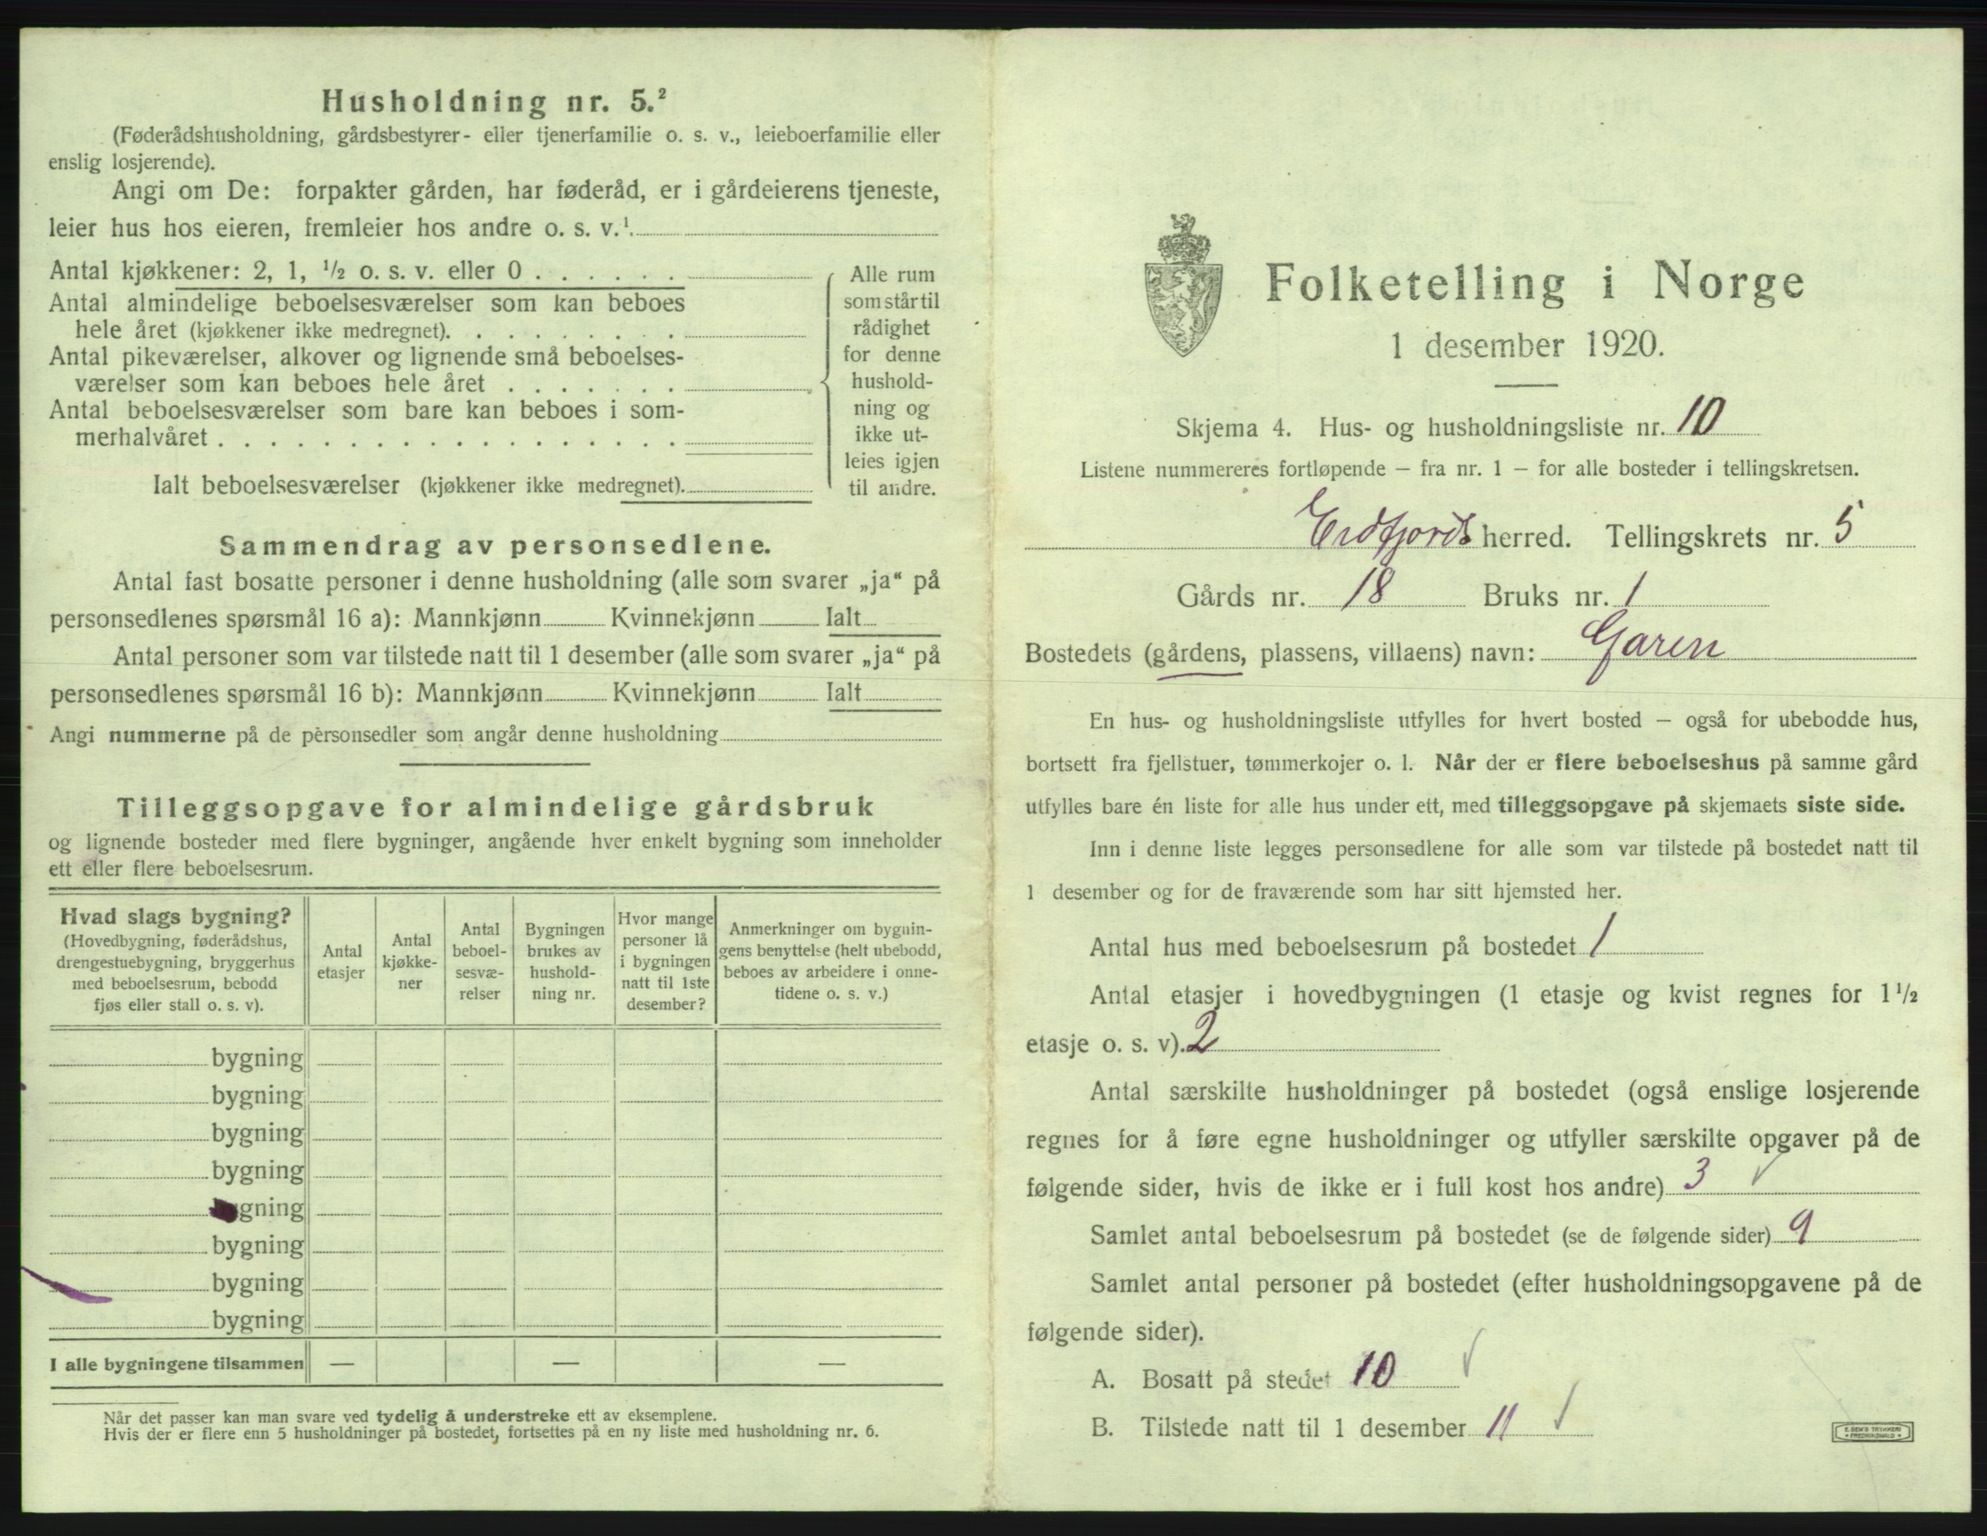 Husholdning nr. 5.²
(Føderådshusholdning, gårdsbestyrer- eller tjenerfamilie o. s. v., leieboerfamilie eller
enslig losjerende).
Angi om De: forpakter gården, har føderåd, er i gårdeierens tjeneste,
leier hus hos eieren, fremleier hos andre o. s. v.¹.
Antal kjøkkener: 2, 1, ½ o. s. v. eller 0 . . . . . .
Antal almindelige beboelsesværelser som kan beboes
hele året (kjøkkener ikke medregnet). . . . . . . . .
Antal pikeværelser, alkover og lignende små beboelses-
værelser som kan beboes hele året . . . . . . .
Antal beboelsesværelser som bare kan beboes i som-
merhalvåret . . . . . . . . . . . . . . . . . .
Ialt beboelsesværelser (kjøkkener ikke medregnet).
Alle rum
som står til
rådighet
for denne
hushold-
ning og
ikke ut-
leies igjen
til andre.
Sammendrag av personsedlene.
Antal fast bosatte personer i denne husholdning (alle som svarer „ja“ på
personsedlenes spørsmål 16 a): Mannkjønn Kvinnekjønn Ialt
Antal personer som var tilstede natt til 1 desember (alle som svarer „ja“ på
personsedlenes spørsmål 16 b): Mannkjønn Kvinnekjønn Ialt
Angi nummerne på de personsedler som angår denne husholdning
Tilleggsopgave for almindelige gårdsbruk
og lignende bosteder med flere bygninger, angående hver enkelt bygning som inneholder
ett eller flere beboelsesrum.
Hvad slags bygning?
(Hovedbygning, føderådshus,
drengestuebygning, bryggerhus
med beboelsesrum, bebodd
fjøs eller stall o. s. v).
Antal
etasjer
Antal
kjøkke-
ner
Antal
beboel-
sesvæ-
relser
Bygningen
brukes av
hushold-
ning nr.
Hvor mange
personer lå
i bygningen
natt til 1ste
desember?
Anmerkninger om bygnin-
gens benyttelse (helt ubebodd,
beboes av arbeidere i onne-
tidene o. s. v.)
bygning
bygning
bygning
bygning
bygning
bygning
bygning
bygning
I alle bygningene tilsammen — — —
Når det passer kan man svare ved tydelig å understreke ett av eksemplene.
Hvis der er flere enn 5 husholdninger på bostedet, fortsettes på en ny liste med husholdning nr. 6.
Folketelling i Norge
1 desember 1920.
Skjema 4. Hus- og husholdningsliste nr. 10
Listene nummereres fortløpende – fra nr. 1 – for alle bosteder i tellingskretsen.
Eidfjords herred. Tellingskrets nr. 5
Gårds nr. 18 Bruks nr. 1
Bostedets (gårdens, plassens, villaens) navn: Garen
En hus- og husholdningsliste utfylles for hvert bosted – også for ubebodde hus,
bortsett fra fjellstuer, tømmerkojer o. l. Når der er flere beboelseshus på samme gård
utfylles bare én liste for alle hus under ett, med tilleggsopgave på skjemaets siste side.
Inn i denne liste legges personsedlene for alle som var tilstede på bostedet natt til
1 desember og for de fraværende som har sitt hjemsted her.
Antal hus med beboelsesrum på bostedet 1
Antal etasjer i hovedbygningen (1 etasje og kvist regnes for 1½
etasje o. s. v). 2
Antal særskilte husholdninger på bostedet (også enslige losjerende
regnes for å føre egne husholdninger og utfyller særskilte opgaver på de
følgende sider, hvis de ikke er i full kost hos andre) 3 ✓
Samlet antal beboelsesrum på bostedet (se de følgende sider) 9
Samlet antal personer på bostedet (efter husholdningsopgavene på de
følgende sider).
A. Bosatt på stedet 10 ✓
B. Tilstede natt til 1 desember 11 ✓